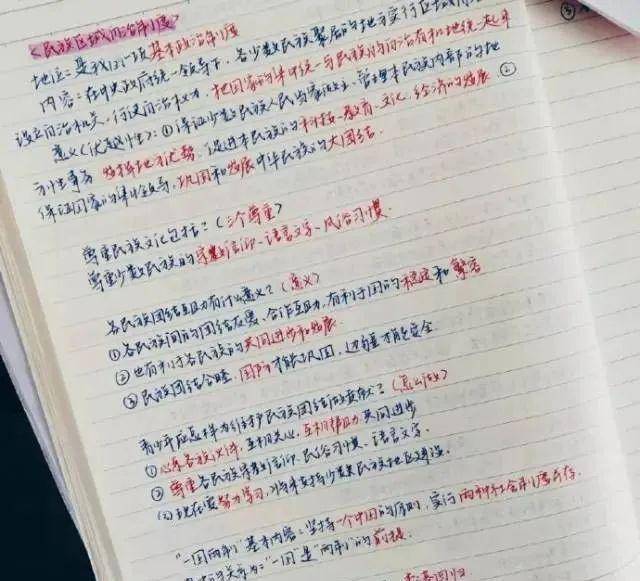 《民族区域自治制度》
地位：是我国一项基本政治制度
内容：在中央政府统一领导下，各少数民族聚居的地方实行区域自治
设立自治机关，行使自治权力，把国家的集中统一与民族的自治有机地统一起来
意义（优越性）：①保证少数民族人民当家做主，管理本民族内部的地
方性事务 发挥地方优势，促进本民族的科技、教育、文化、经济的发展 ②
保证国家的集中领导，巩固和发展中华民族的大团结.
尊重民族文化包括：（三个尊重）
尊重少数民族的宗教信仰、语言文字、风俗习惯.
各民族团结互助有什么意义？（意义）
①各民族间的团结友爱、合作互助，有利于国的稳定和繁荣
②也有利于各民族的共同进步和发展.
③民族团结合睦，国防才能巩固，边疆才能安全.
青少年应怎样为维护民族团结做贡献？（怎么做）
①心系各族伙伴，互相关心，互相帮助，共同进步
②尊重各民族宗教信仰、民俗习惯、语言文字.
③现在要努力学习，将来支持少数民族地区建设.
"一国两制"基本内容：坚持一个中国的原则，实行两种社会制度并存.
关系为："一国"是"两制"的前提.